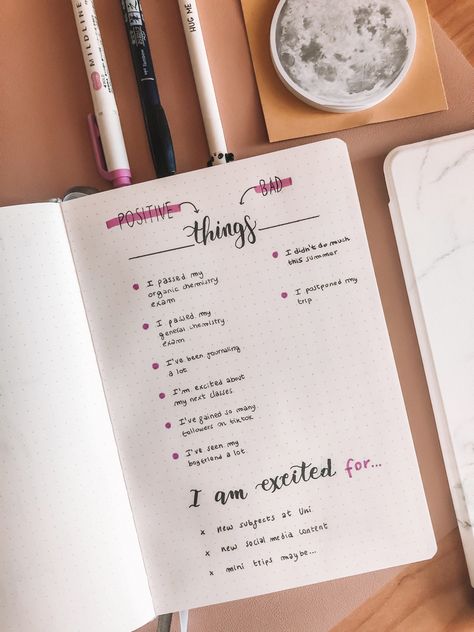 MILDLINER
HUG ME
POSITIVE
BAD
things
I passed my
organic chemistry
exam
I passed my
general chemistry
exam
I've been journaling
a lot
I'm excited about
my next classes
I've gained so many
followers on tiktok
I've seen my
boyfriend a lot
I didn't do much
this summer
I postponed my
trip
I am excited for...
x new subjects at Uni
x new social media content
x mini trips maybe...